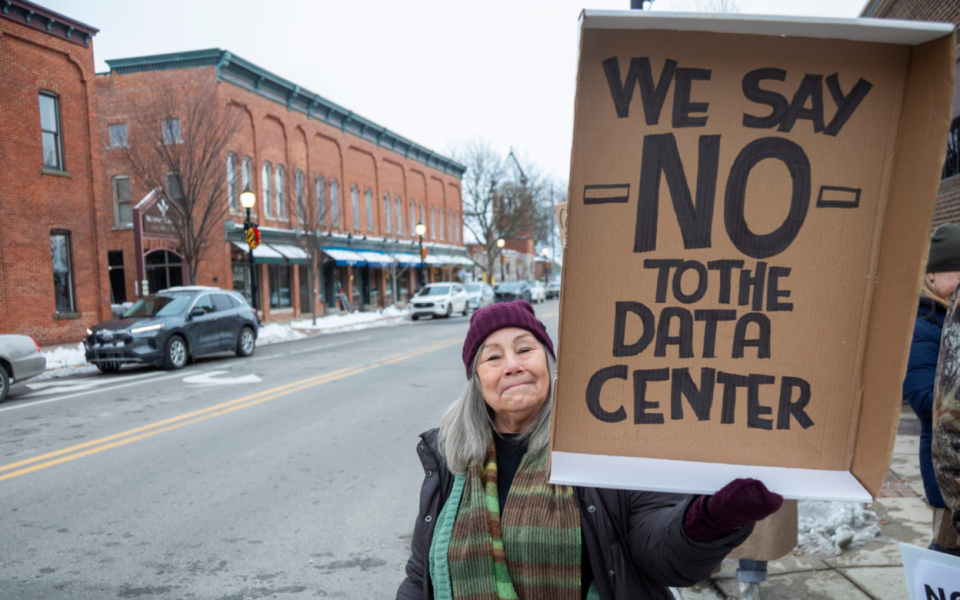 WE SAY
NO
TO THE
DATA
CENTER
NO